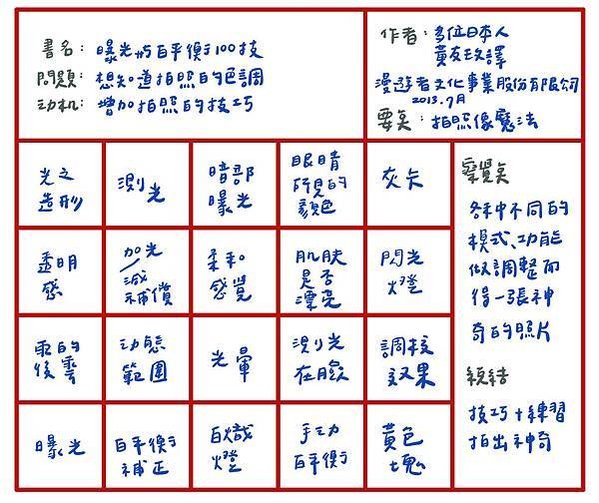 書名: 曝光與白平衡100技
問題: 想知道拍照的色調
动机: 增加拍照的技巧
作者: 多位日本人
黃友玫譯
漫遊者文化事業股份有限公司
2013.7月
要矣: 拍照像魔法
光之
造形
測光
暗部
曝光
眼睛
所見的
顏色
灰卡
透明
感
加光
減
補償
柔和
感覺
肌膚
是否
漂亮
閃光
燈
雨的
後雲
动態
範圍
光暈
測光
在臉
調校
效果
曝光
白平衡
補正
白熾
燈
手动
白平衡
黃色
塊
察覺矣
各种不同的
模式、功能
做調整而
得一張神
奇的照片
統結
技巧+練習
拍出神奇